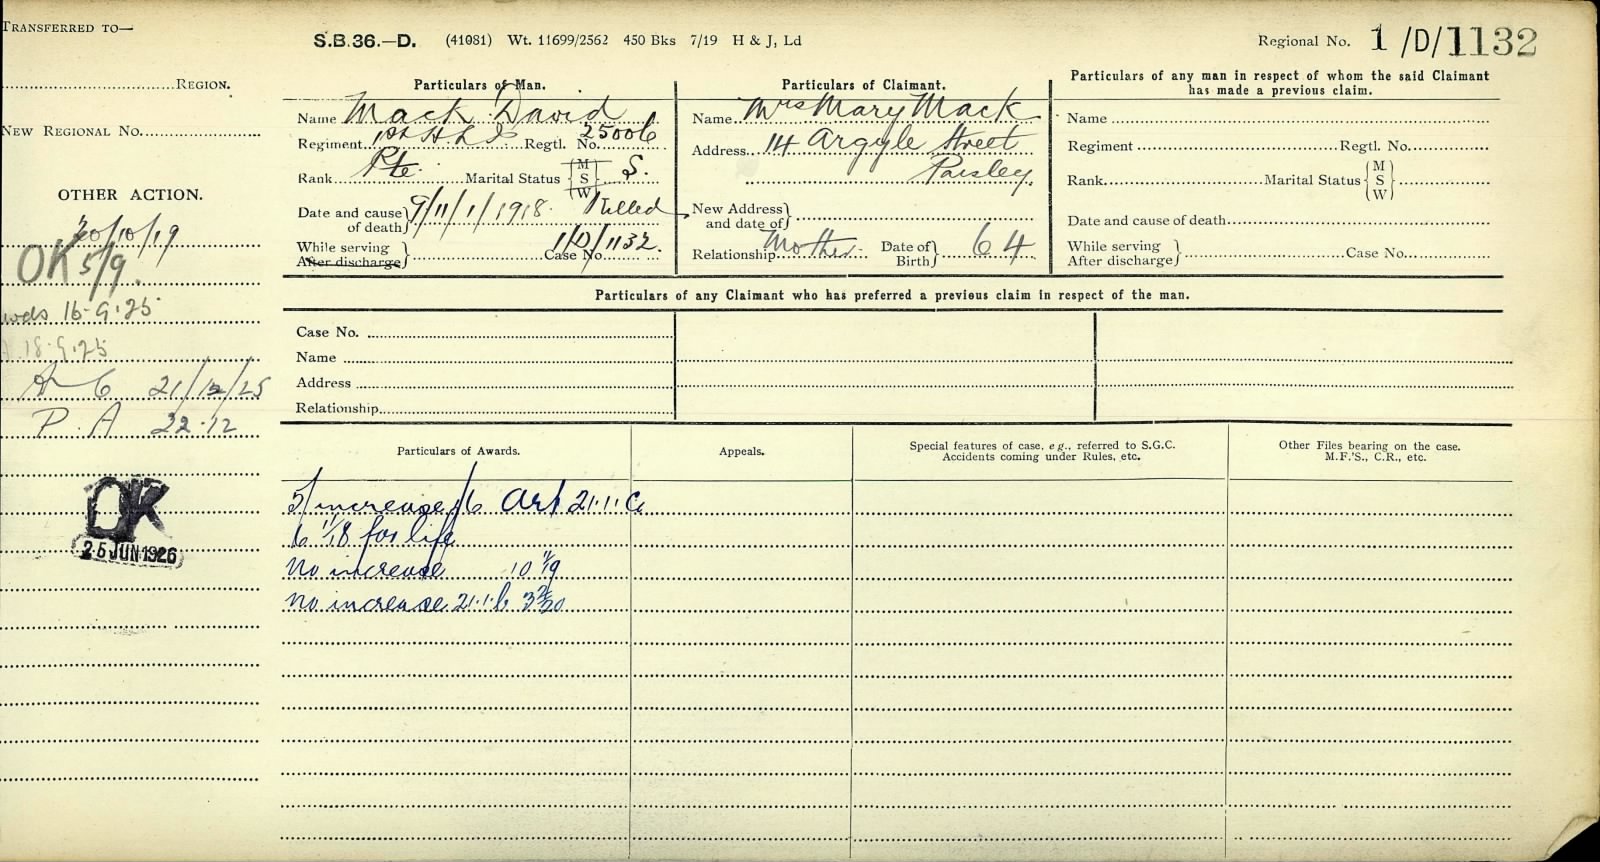 TRANSFERRED TO—
REGION.
NEW REGIONAL NO.
OTHER ACTION.
20/10/19
OK 5/9.
16.9.25
18.9.25
21/12/25
P.A 22.12
OK
25 JUN 1926
S.B.36.—D. (41081) Wt. 11699/2562 450 Bks 7/19 H & J, Ld
Regional No. 1/D/1132
Particulars of Man.
Name Mack David
Regiment 1st H.L.I Regtl. No. 25006
Rank Pte. Marital Status {M S W} S.
Date and cause of death} 9/11/1918. Killed
While serving
After discharge} Case No. 1/D/1132.
Particulars of Claimant.
Name Mrs Mary Mack
Address 14 Argyle Street
Paisley.
New Address and date of}
Relationship Mother Date of Birth} 64
Particulars of any man in respect of whom the said Claimant
has made a previous claim.
Name
Regiment Regtl. No.
Rank Marital Status {M S W}
Date and cause of death
While serving
After discharge} Case No.
Particulars of any Claimant who has preferred a previous claim in respect of the man.
Case No.
Name
Address
Relationship
Particulars of Awards.
5/ increase
6 11/18 for life
No increase 10 11/19
No increase 21.1.b 3 2/20
Appeals.
Special features of case, e.g., referred to S.G.C.
Accidents coming under Rules, etc.
Other Files bearing on the case.
M.F.'S., C.R., etc.